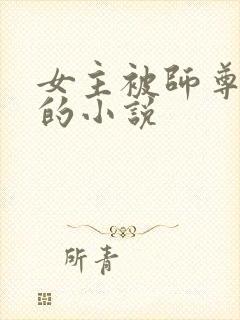 女主被师尊
的小说
所青